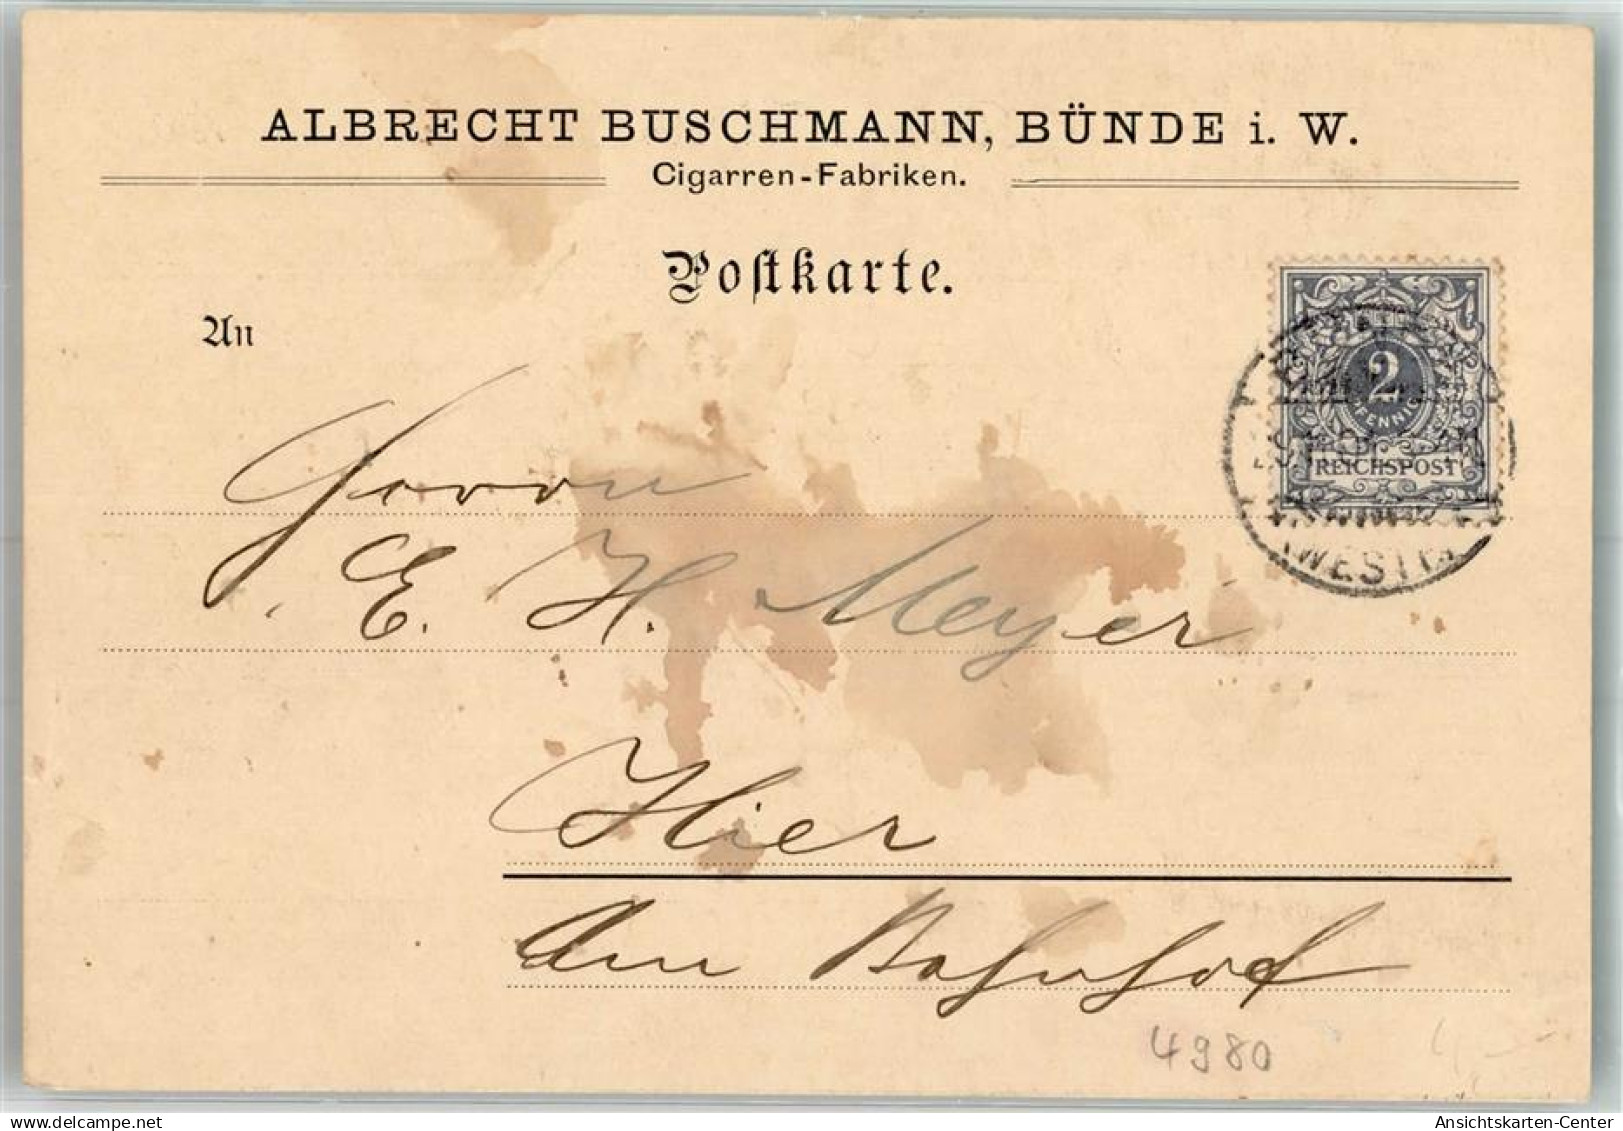 ALBRECHT BUSCHMANN, BÜNDE i. W.
Cigarren-Fabriken.
Postkarte.
An
2
PFENNIG
REICHSPOST
WESTF.
Herrn
E. H. Meyer
Hier
Am Bahnhof
4980
Ansichtskarten-Center